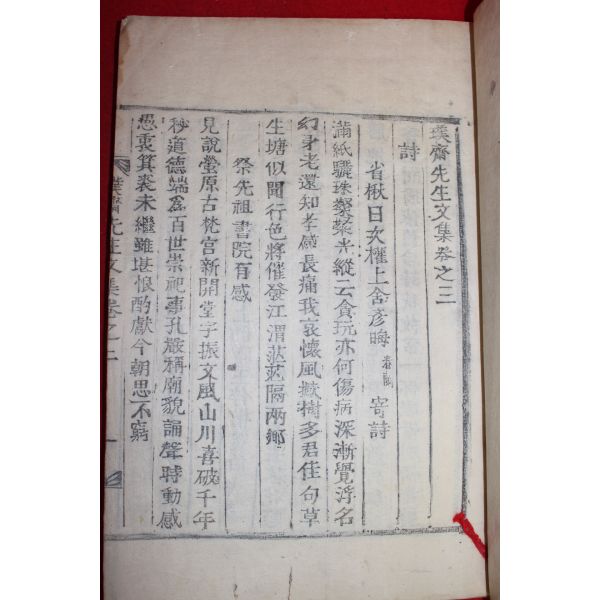 璞齋先生文集卷之二
詩
省楸日次權上舍彦晦春蘭寄詩
滿紙驪珠燦燦光縱云貪玩亦何傷病深漸覺浮名
幻身老還知孝感長痛我哀懷風撼樹多君佳句草
生塘似聞行色將催發江渭茫茫隔兩鄉
祭先祖書院有感
見說瑩原古梵宮新開堂宇振文風山川喜破千年
秘道德端爲百世崇祀事孔嚴稱廟貌誦聲時動感
愚衷箕裘未繼雖堪恨酌獻今朝思不窮
璞齋先生文集卷之二 一